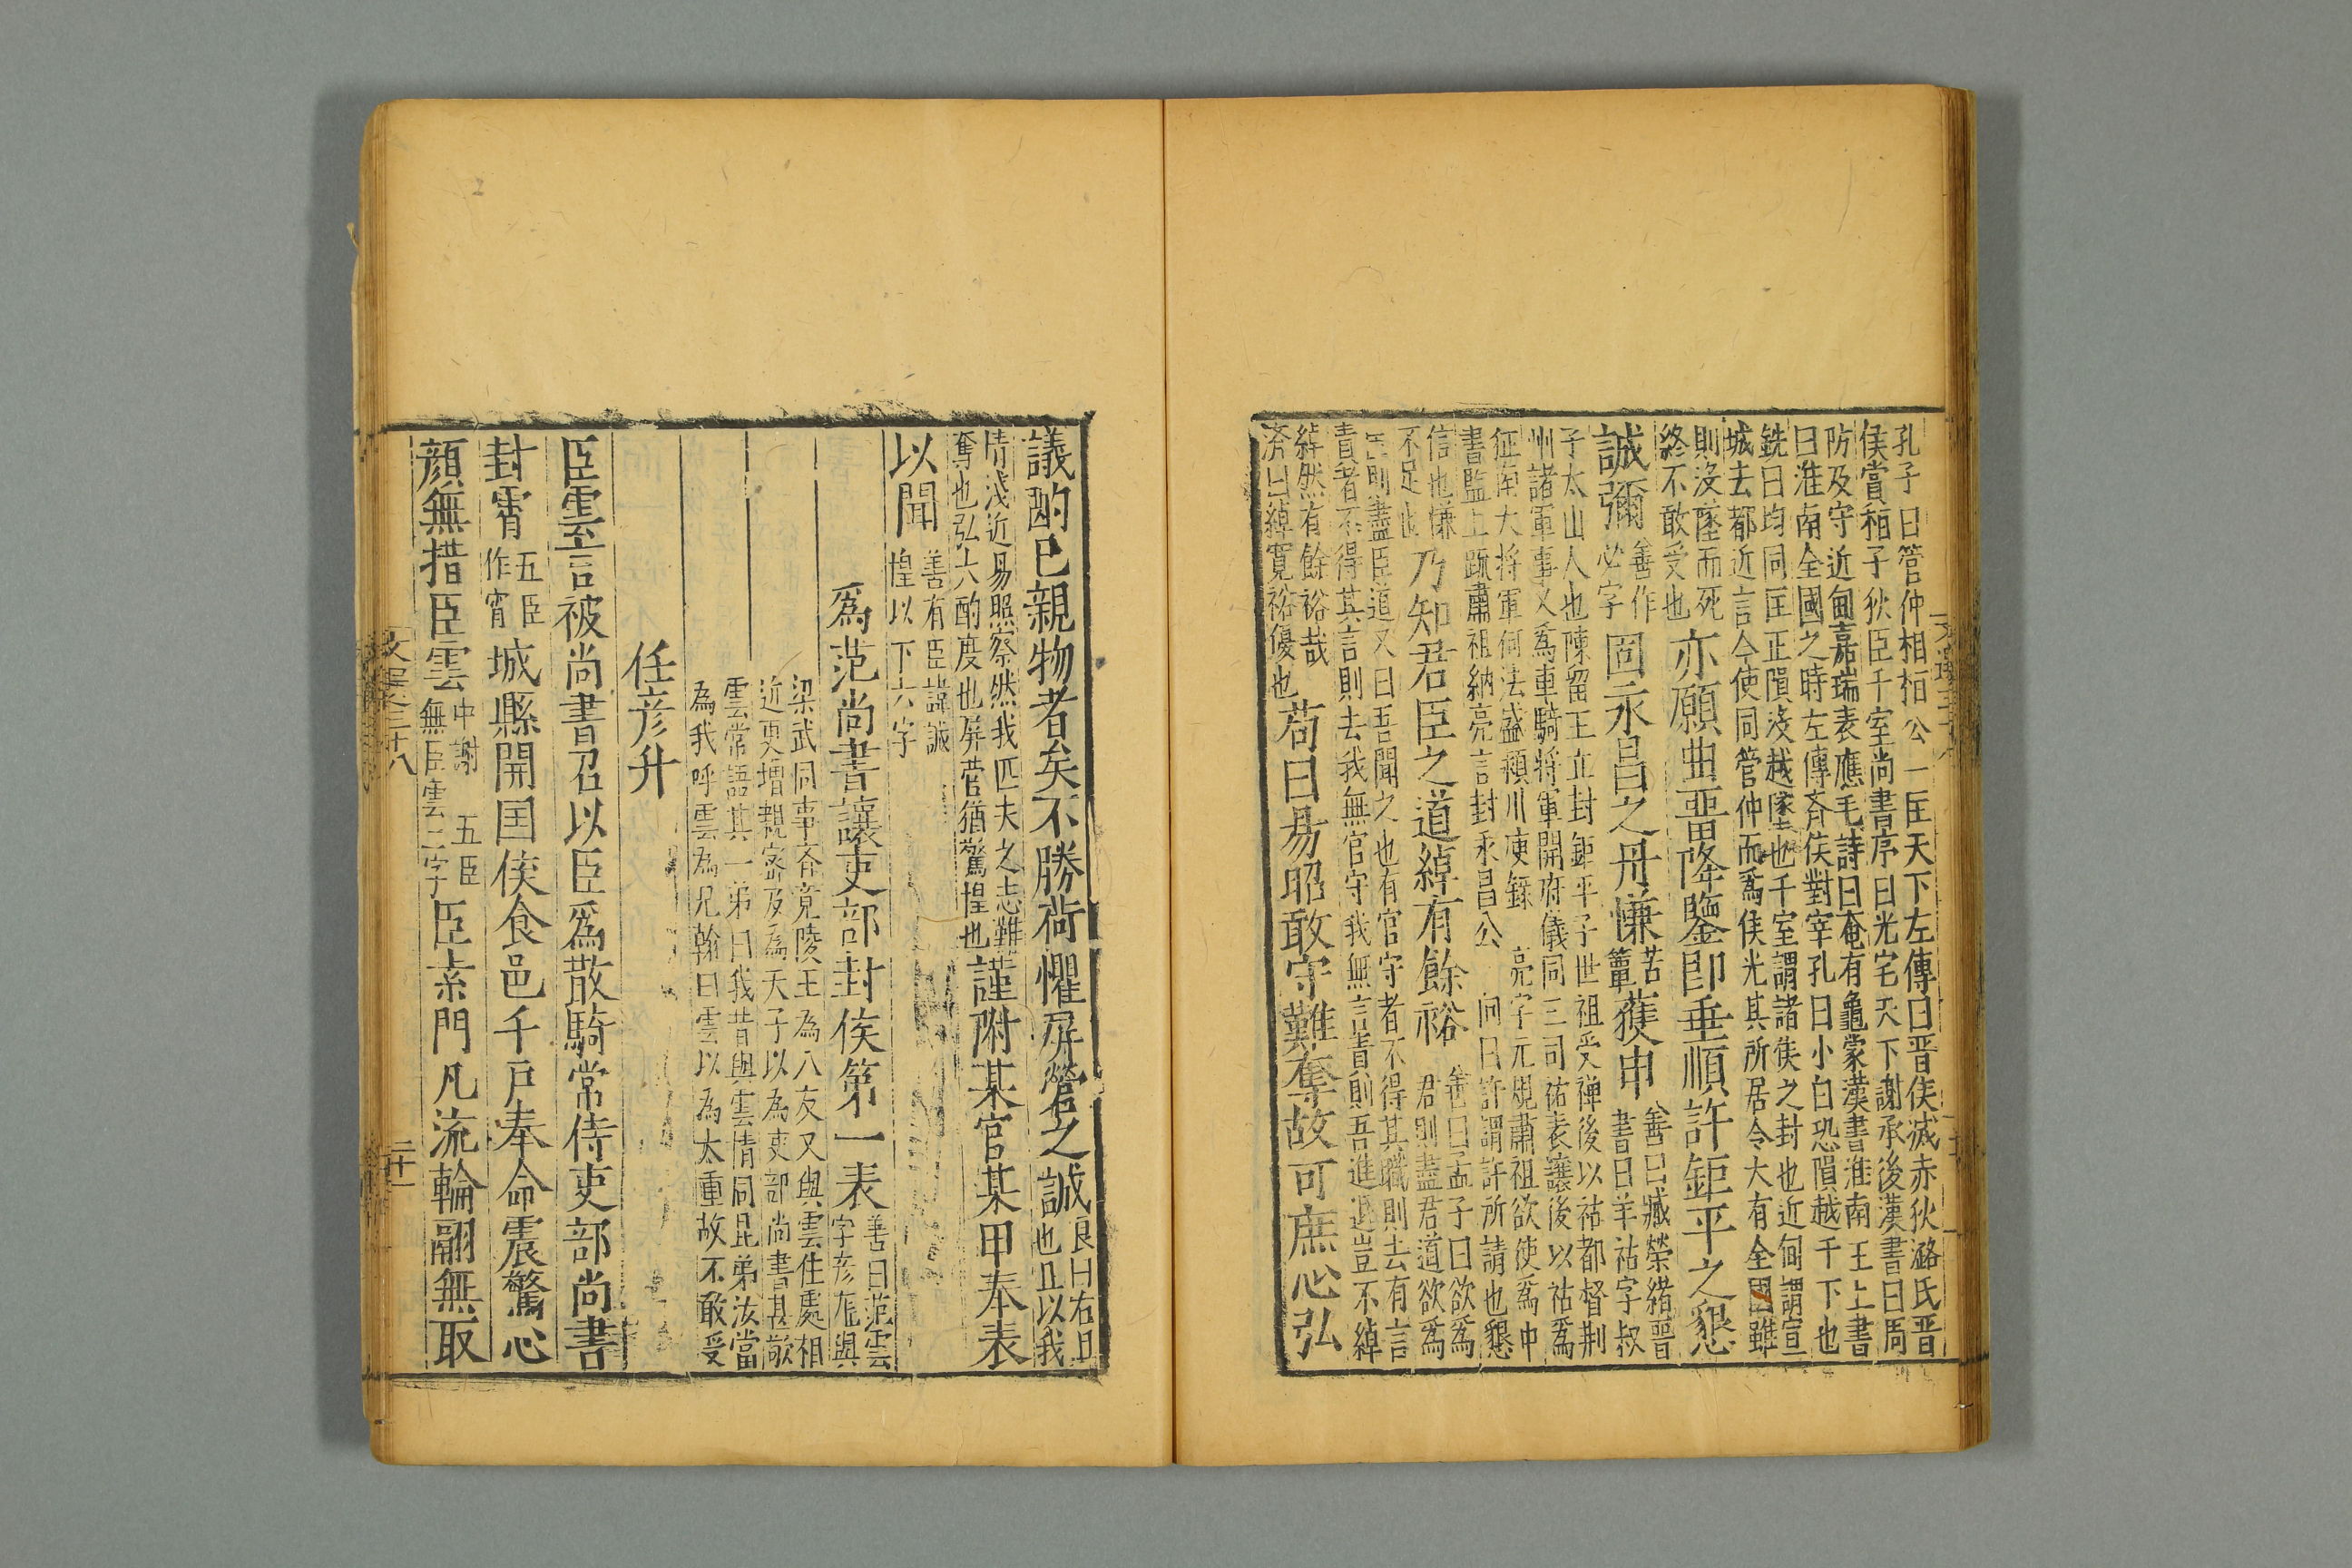 孔子曰管仲相桓公一匡天下左傳曰晉侯滅赤狄潞氏晉
侯賞桓子狄臣千室尚書序曰光宅天下謝承後漢書曰周
防及守近甸嘉瑞表應毛詩曰奄有龜蒙漢書淮南王上書
曰淮南全國之時左傳齊侯對宰孔曰小白恐隕越千下也
銑曰均同匡正隕沒越墜也千室謂諸侯之封也近甸謂宣
城去都近言今使同管仲而爲侯光其所居令大有全國雖
則沒墜而死
終不敢受也
亦願曲畱降鑒卽垂順許鉅平之懇
誠彌
善作
必字
固永昌之丹慊
苦
簟
獲申
善曰臧榮緒晉
書曰羊祜字叔
子太山人也陳留王立封鉅平子世祖受禅後以祜都督荆
州諸軍事又爲車騎將軍開府儀同三司祜表讓後以祜爲
征南大將軍何法盛頴川庾錄 亮字元規肅祖欲使爲中
書監上疏肅祖納亮言封永昌公 向曰許謂許所請也懇
信也慊
不足也
乃知君臣之道綽有餘裕
善曰孟子曰欲爲
君則盡君道欲爲
臣則盡臣道又曰吾聞之也有官守者不得其職則去有言
責者不得其言則去我無官守我無言責則吾進退豈不綽
綽然有餘裕哉
濟曰綽寛裕優也
苟曰易昭敢守難奪故可庶心弘
議酌已親物者矣不勝荷懼屏營之誠
良曰右曰
也且以我
情淺近易照察然我匹夫之志難
奪也弘大酌度也屏營猶驚惶也
謹附某官某甲奉表
以聞
善有臣諱誠
惶以下六字
爲范尚書讓吏部封侯第一表
善曰范雲
字彦龍與
梁武同事齊竟陵王為八友又與雲住處相
近更增親密及爲天子以為吏部尚書甚敬
雲常語其一弟曰我昔與雲情同昆弟汝當
為我呼雲為兄翰曰雲以為太重故不敢受
任彦升
臣雲言被尚書召以臣爲散騎常侍吏部尚書
封霄
五臣
作宵
城縣開国侯食邑千戸奉命震驚心
顔無措臣雲
中謝 五臣
無臣雲二字
臣素門凡流輪翮無取
文選卷三十八
二十一